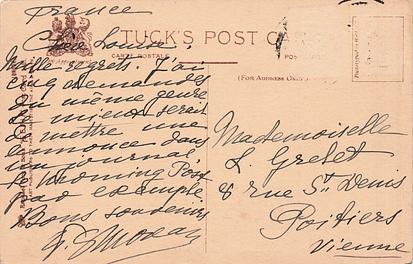 France
TUCK'S POST CARD
CARTE POSTALE
POST
(FOR ADDRESS ONLY)
Chère Louise.
Mille regrets. J'ai
cinq demandes
du même genre
le mieux serait
de mettre une
annonce dans
un journal
le Morning Post
par exemple.
Bons souvenirs
Mademoiselle
L Grelet
8 rue St Denis
Poitiers
Vienne